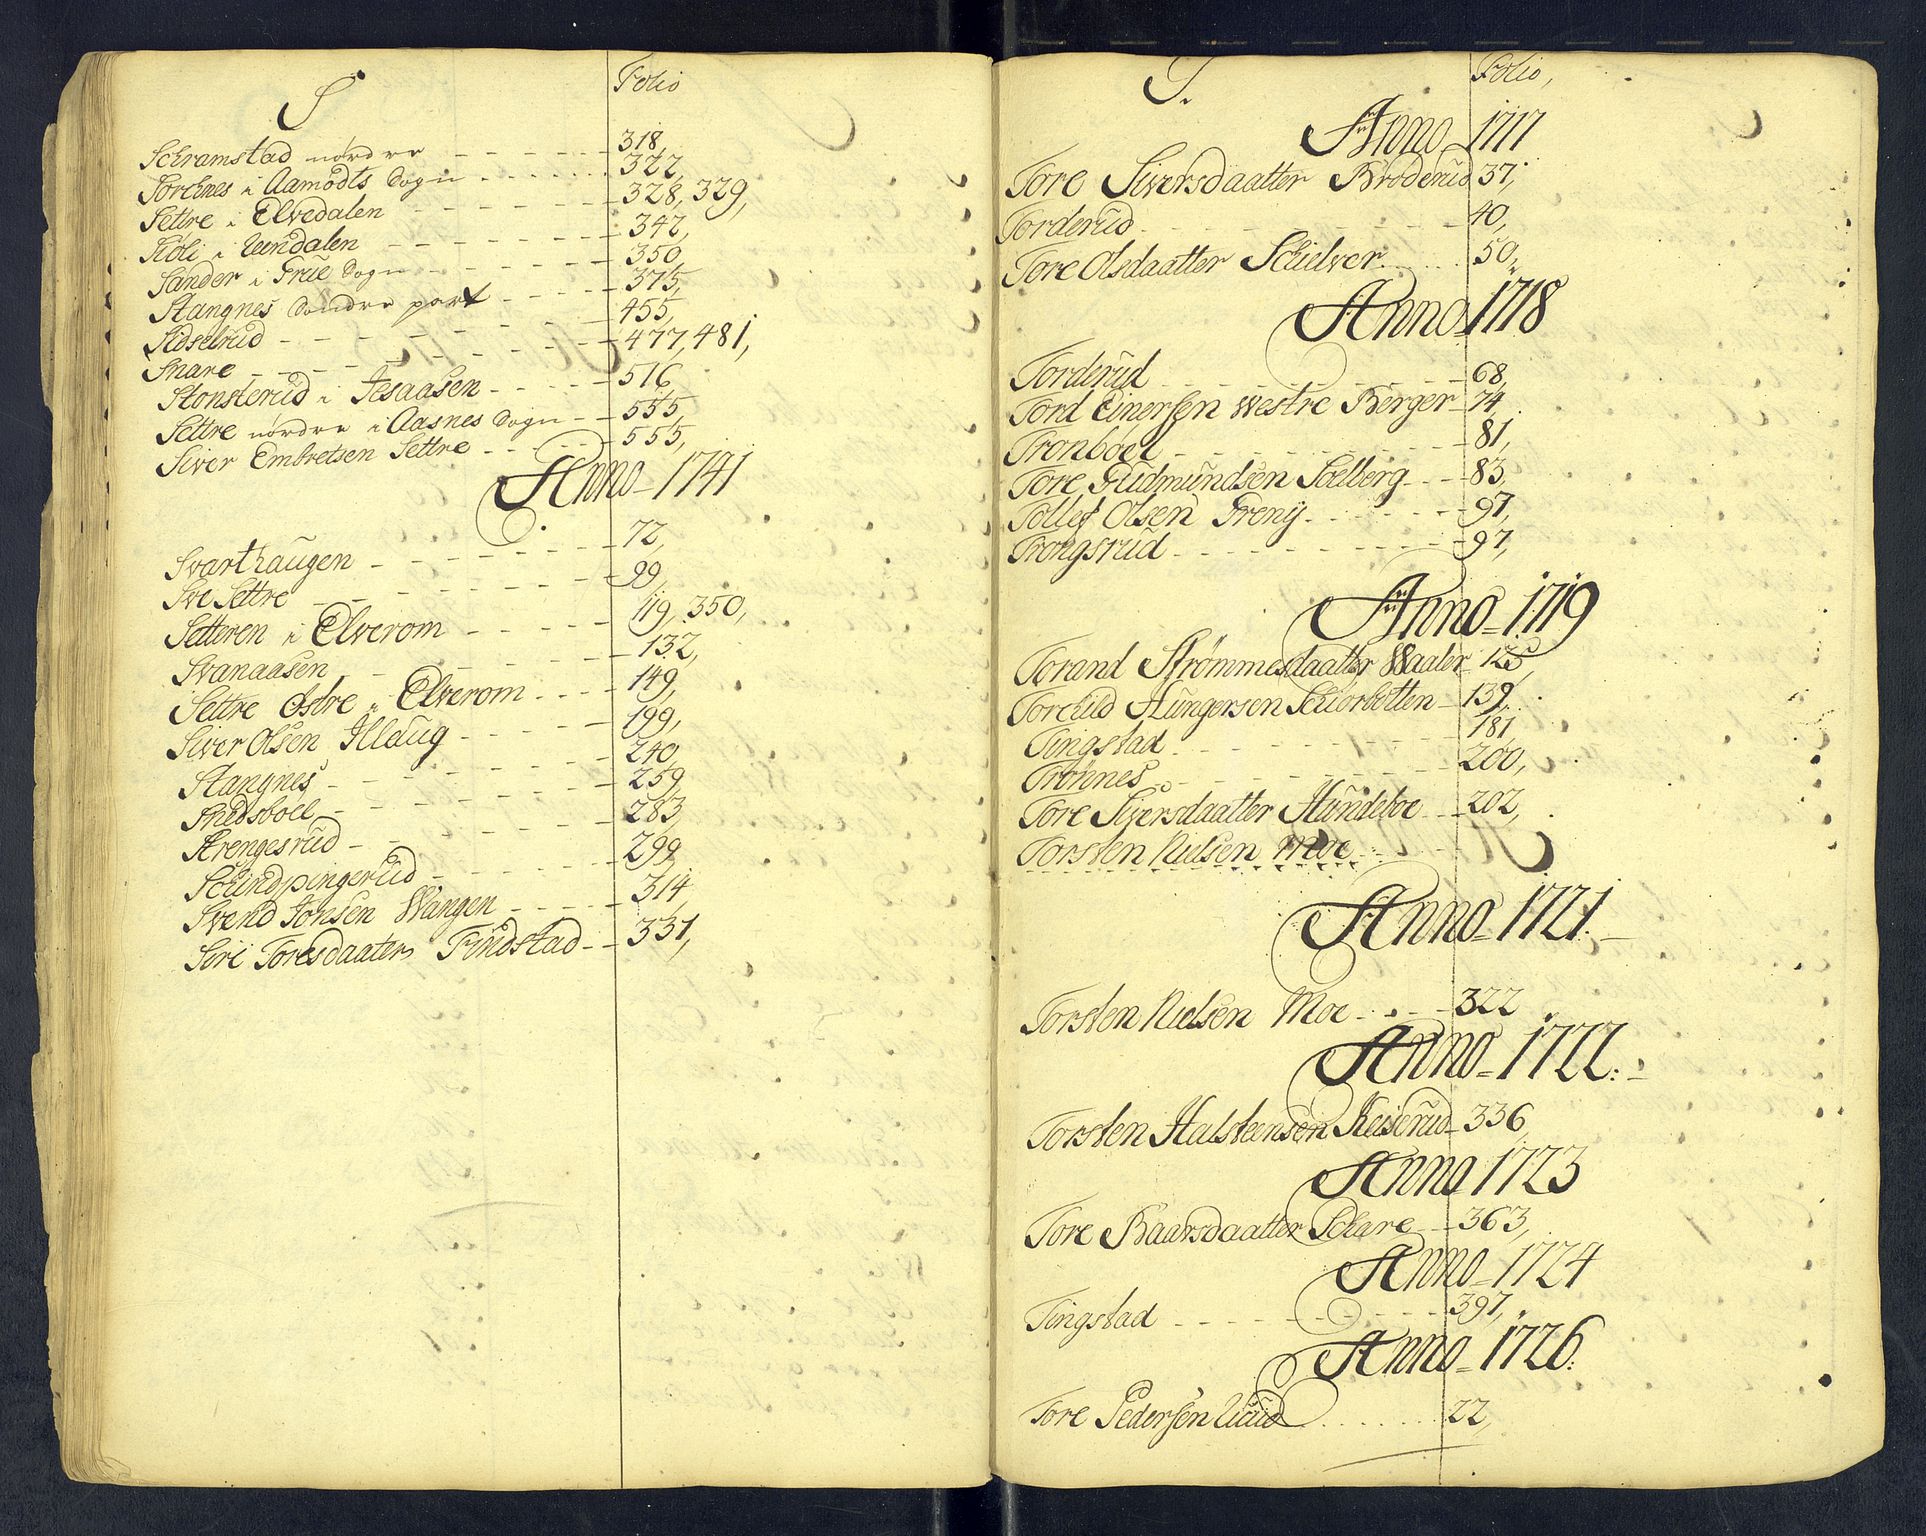 S
Folio
Schramstad nørdre - - - - 318,
Sorchnes i Aamodts Sogn - - - - 322,
Settre i Elvedalen - - - - 328, 329,
Siöli i Uendalen - - - - 342,
Sander i Grue Sogn - - - - 350,
Stangnes Søndre part - - - - 375,
Sidselrud - - - - 455,
Snare - - - - 477, 481,
Stonsterud i Jesaasen - - - - 516,
Settre nørdre i Aasnes Sogn - - 555,
Siver Embretsen Settre - - - - 555,
Anno - 1741
Svarthaugen - - - - 72,
Sve Settre - - - - 99,
Setteren i Elverom - - - - 119, 350,
Svanaasen - - - - 132,
Settre Østre i Elverom - - - - 149,
Siver Olsen Illaug - - - - 199,
Stangnes - - - - 240,
Snedsboel - - - - 259,
Strengesrud - - - - 283,
Schindpingerud - - - - 299,
Svend Jonsen Wangen - - - - 314,
Siri Toresdaater Findstad - - 331,
T.
Folio,
Anno 1717
Tore Siversdaatter Broderud 37,
Torderud - - - - 40,
Tore Olsdaatter Schielver - - - - 50,
Anno 1718
Torderud - - - - 68,
Tord Einersen Westre Berger - 74,
Tronboel - - - - 81,
Tore Gudmundsen Soelberg - - - 83,
Tollef Olsen Grenij - - - - 97,
Trongsrud - - - - 97,
Anno - 1719
Torand Strømmesdaatter Waaler 125,
Torchild Hungersen Schorbotten - 139,
Tingstad - - - - 181,
Trønnes - - - - 200,
Tore Siversdaatter Hundeloe - - 202,
Torsten Nielsen Moe - - - -
Anno - 1721.
Torsten Nielsen Moe - - - - 322
Anno - 1722.
Torsten Halsteensen Keiserud - 336
Anno 1723
Tore Baarsdaatter Schare - - 363,
Anno - 1724
Tingstad - - - - 397,
Anno - 1726.
Tore Pedersen - - - - 22,